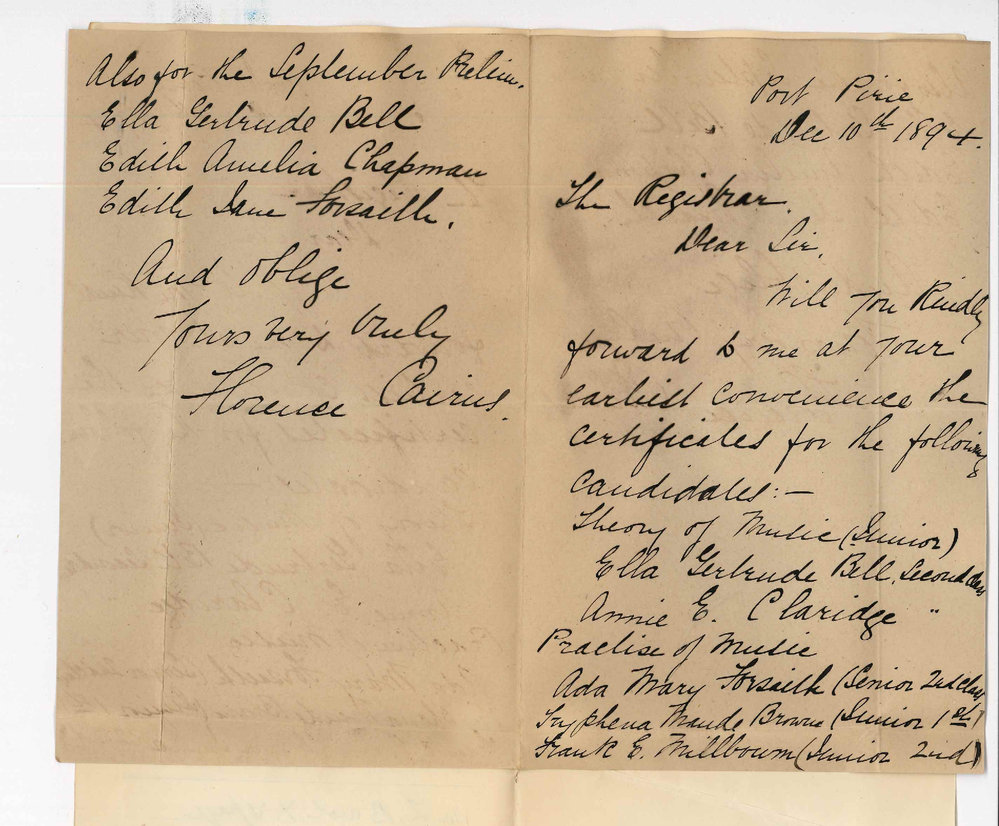 Port Pirie
Dec 10th 1894.
The Registrar.
Dear Sir,
Will you Kindly
forward to me at your
earliest convenience the
certificates for the following
candidates:—
Theory of Music (Junior)
Ella Gertrude Bell, Second class
Annie E. Claridge "
Practise of Music
Ada Mary Forsaith (Senior 2nd class)
Tryphena Maude Browne (Junior 1st)
Frank E. Millbourn (Junior 2nd)
Also for the September Prelim.
Ella Gertrude Bell
Edith Amelia Chapman
Edith Jane Forsaith.
And oblige
Yours very truly
Florence Cairns.